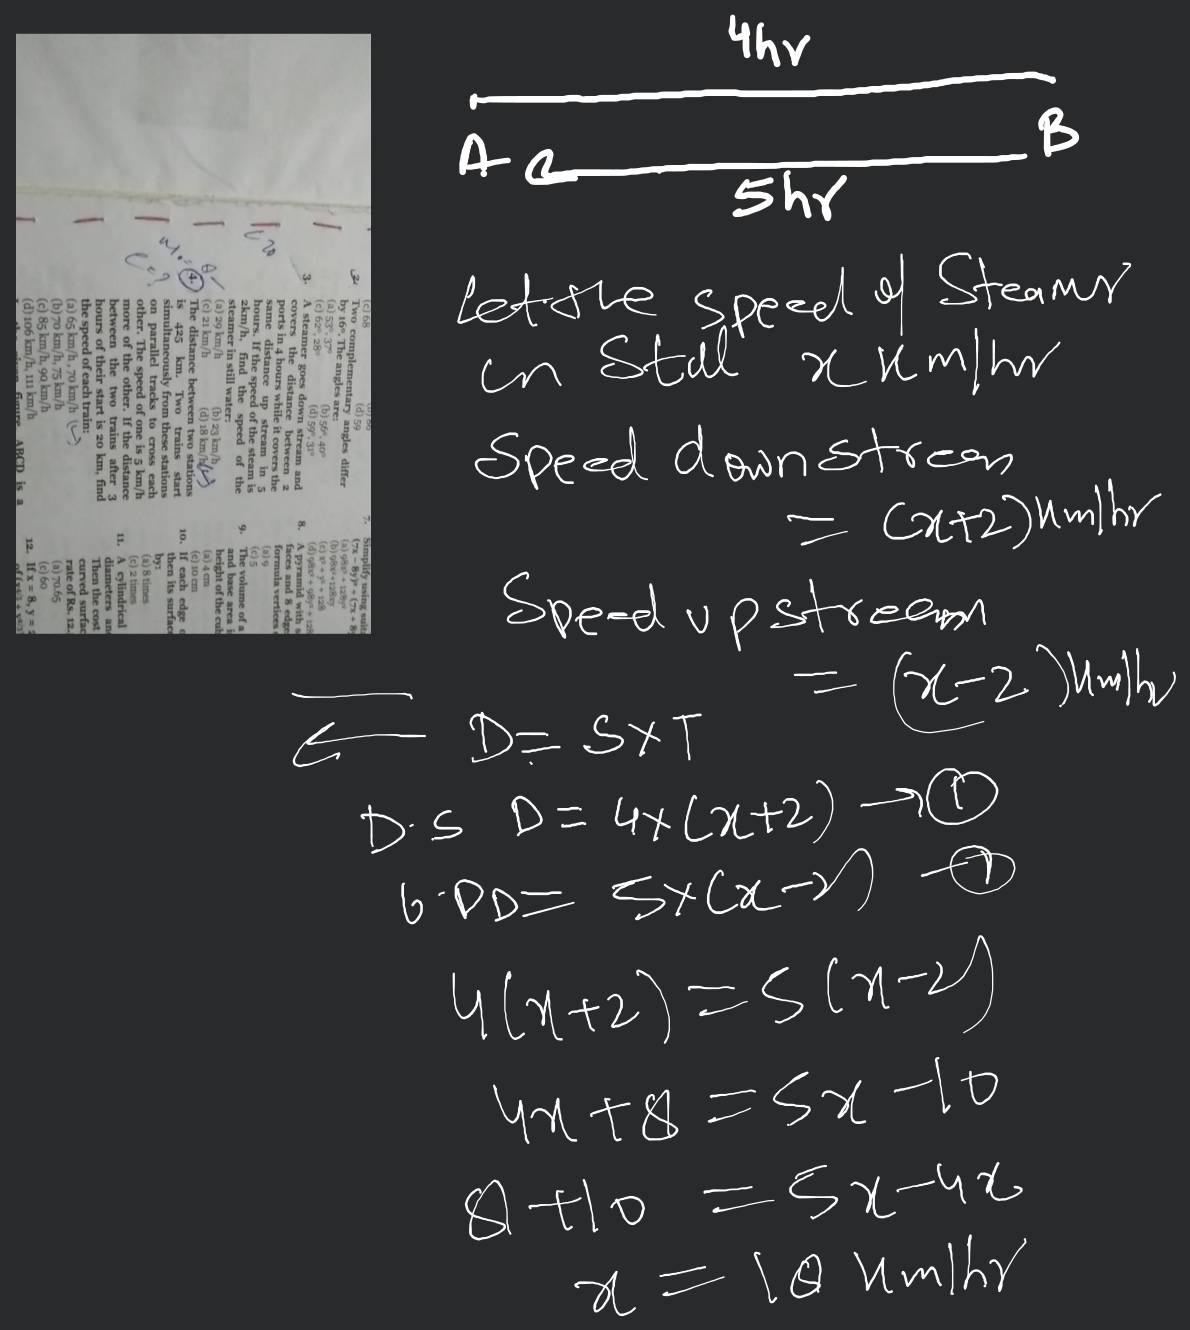 4hr
A
B
5hr
Let the speed of Steamr
in Still x km/hr
Speed downstream
= (x+2)km/hr
Speed upstream
= (x-2)km/hr
D = S×T
D.S D = 4×(x+2) → ①
U.P D = 5×(x-2) → ①
4(x+2) = 5(x-2)
4x+8 = 5x-10
8+10 = 5x-4x
x = 18 km/hr
(c) 68
(d) 59
2. Two complementary angles differ
by 16°. The angles are:
(a) 53°, 37° (b) 56°, 40°
(c) 62°, 28° (d) 59°, 31°
3. A steamer goes down stream and
covers the distance between 2
ports in 4 hours while it covers the
same distance up stream in 5
hours. If the speed of the steam is
2km/h, find the speed of the
steamer in still water:
(a) 29 km/h (b) 23 km/h
(c) 21 km/h (d) 18 km/h
4. The distance between two stations
is 425 km. Two trains start
simultaneously from these stations
on parallel tracks to cross each
other. The speed of one is 5 km/h
more of the other. If the distance
between the two trains after 3
hours of their start is 20 km, find
the speed of each train:
(a) 65 km/h, 70 km/h
(b) 70 km/h, 75 km/h
(c) 85 km/h, 90 km/h
(d) 106 km/h, 111 km/h
figure ABCD is a
7. Simplify using
8. A pyramid with
faces and 8 edge
formula vertices
(a) 9
(c) 5
9. The volume of a
and base area i
height of the cub
(a) 4 cm
(c) 10 cm
10. If each edge
then its surface
by:
(a) 8 times
(c) 2 times
11. A cylindrical
diameters an
Then the cost
curved surfac
rate of Rs. 12.
(a) 70.65
(c) 60
12. If x = 8, y =